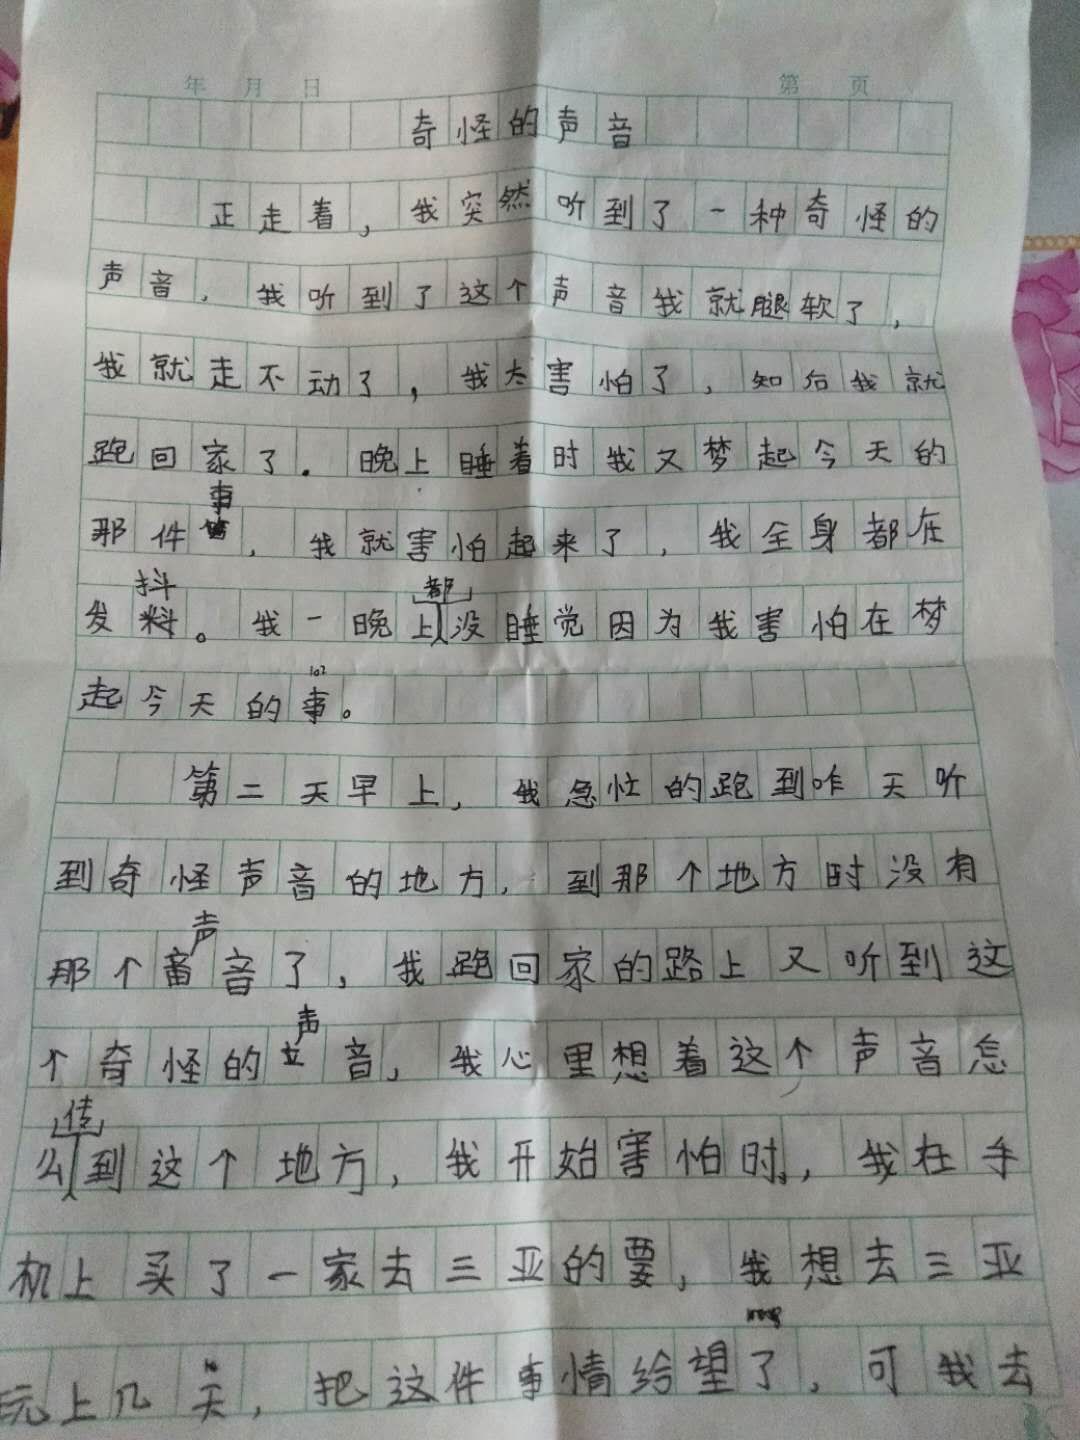 年 月 日 第 页
奇怪的声音
正走着，我突然听到了一种奇怪的
声音，我听到了这个声音我就腿软了，
我就走不动了，我太害怕了，知后我就
跑回家了．晚上睡着时我又梦起今天的
那件事，我就害怕起来了，我全身都在
发抖。我一晚上都没睡觉因为我害怕在梦
起今天的事。
第二天早上，我急忙的跑到咋天听
到奇怪声音的地方，到那个地方时没有
那个声音了，我跑回家的路上又听到这
个奇怪的声音，我心里想着这个声音怎
么传到这个地方，我开始害怕时，我在手
机上买了一家去三亚的要，我想去三亚
玩上几天，把这件事情给望了，可我去